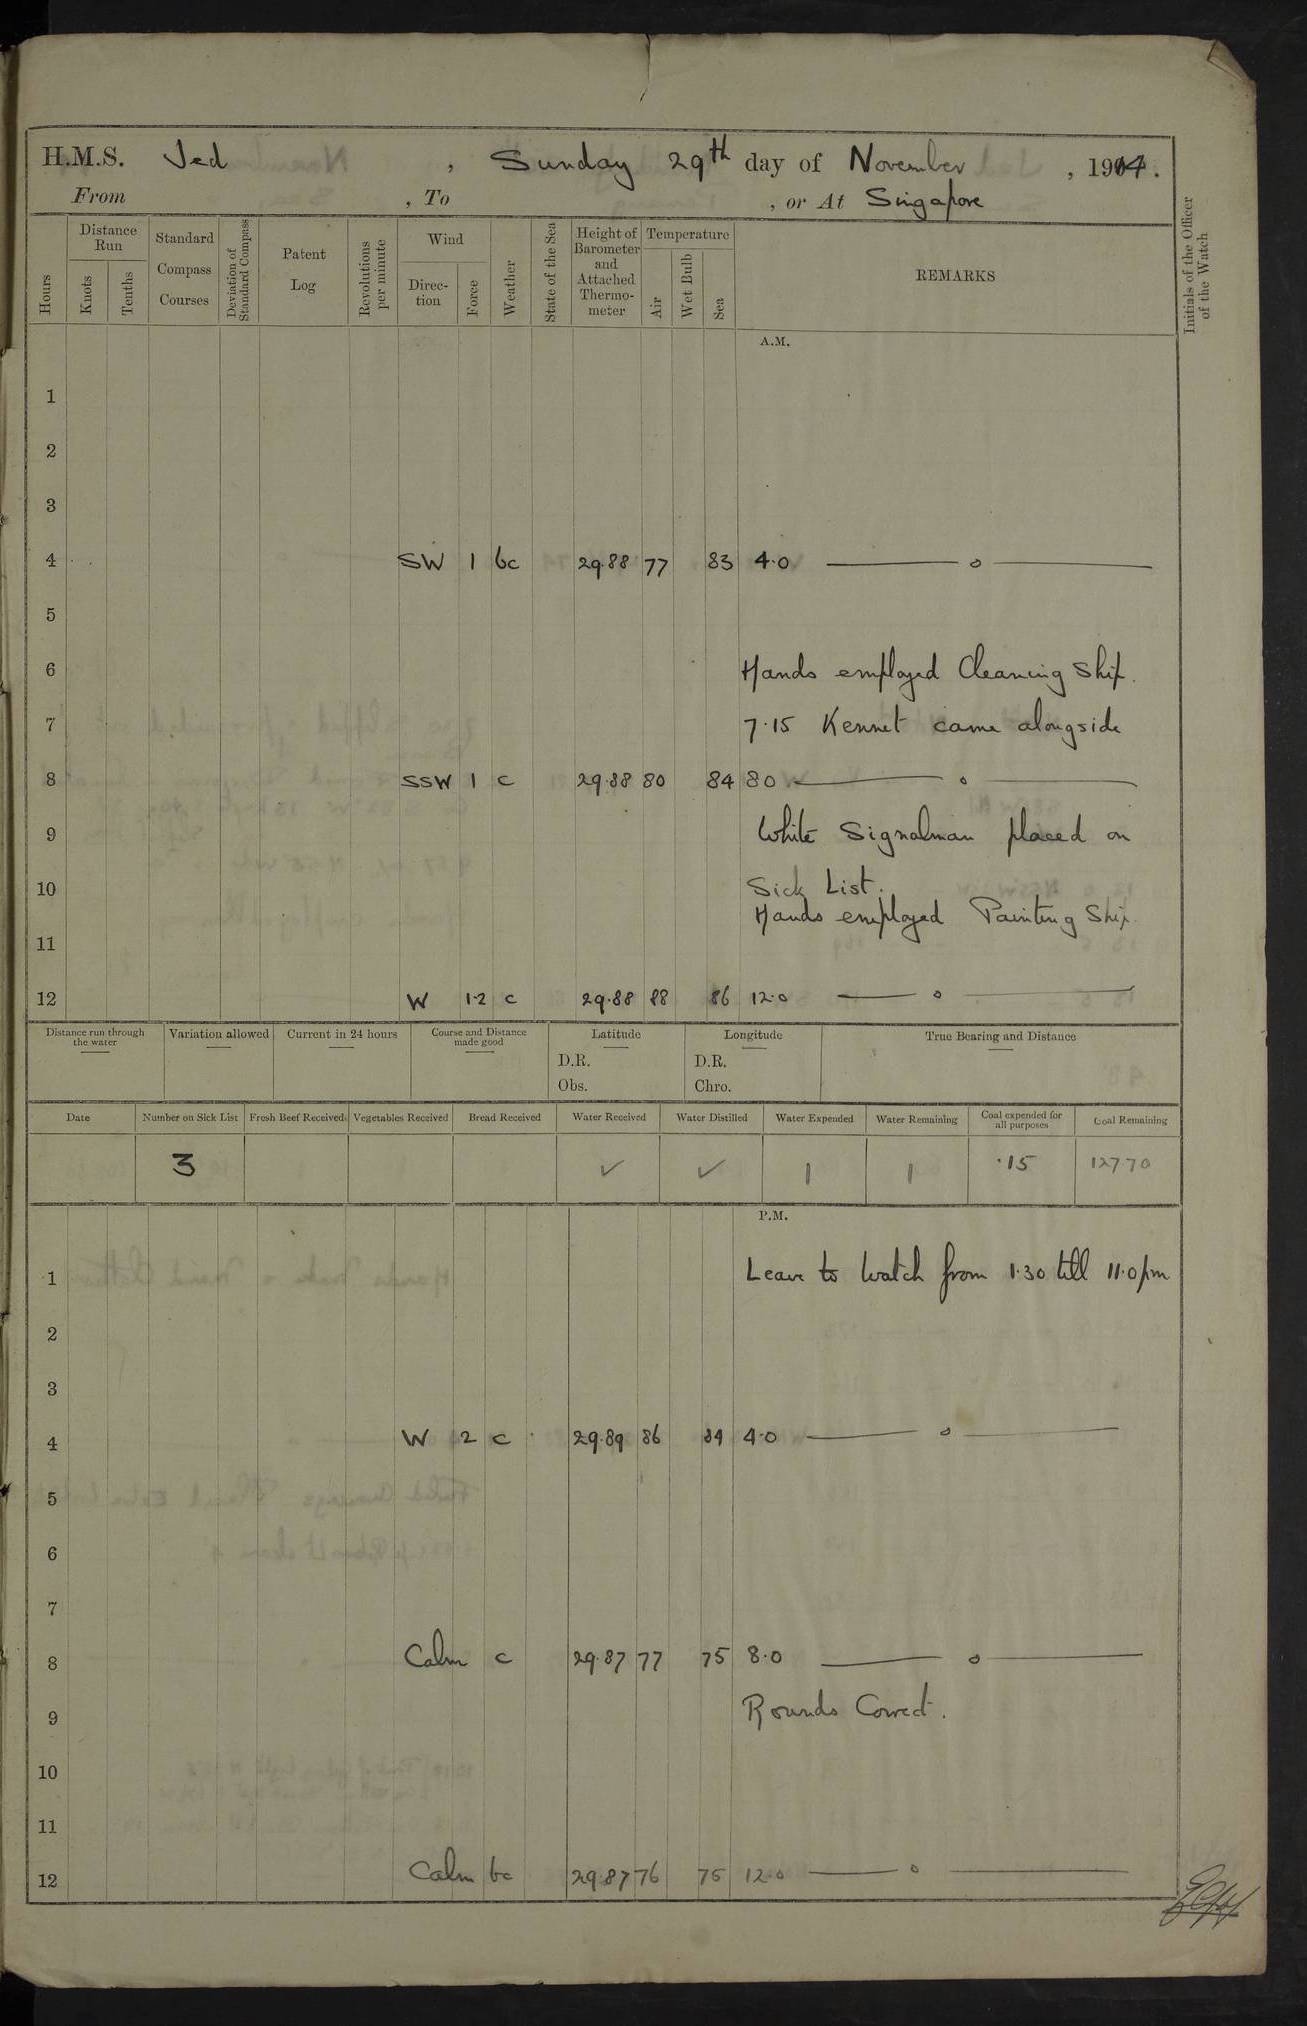 H.M.S. Jed, Sunday 29th day of November, 1914.
From , To , or At Singapore
Hours
Distance Run
Knots
Tenths
Standard Compass Courses
Deviation of Standard Compass
Patent Log
Revolutions per minute
Wind
Direction
Force
Weather
State of the Sea
Height of Barometer and Attached Thermometer
Temperature
Air
Wet Bulb
Sea
REMARKS
Initials of the Officer of the Watch
A.M.
1
2
3
4 SW 1 bc 29.88 77 83 4.0 —— o ——
5
6 Hands employed Cleaning Ship.
7 7.15 Kennet came alongside
8 SSW 1 c 29.88 80 84 80 —— o ——
9 White Signalman placed on
10 Sick List.
Hands employed Painting Ship.
11
12 W 1.2 c 29.88 88 86 12.0 —— o ——
Distance run through the water
Variation allowed
Current in 24 hours
Course and Distance made good
Latitude
D.R.
Obs.
Longitude
D.R.
Chro.
True Bearing and Distance
Date
Number on Sick List
Fresh Beef Received
Vegetables Received
Bread Received
Water Received
Water Distilled
Water Expended
Water Remaining
Coal expended for all purposes
Coal Remaining
3 ✓ ✓ 1 1 .15 12770
P.M.
1 Leave to Watch from 1.30 till 11.0pm
2
3
4 W 2 c 29.89 86 84 4.0 —— o ——
5
6
7
8 Calm c 29.87 77 75 8.0 —— o ——
9 Rounds Correct.
10
11
12 Calm bc 29.87 76 75 12.0 —— o ——